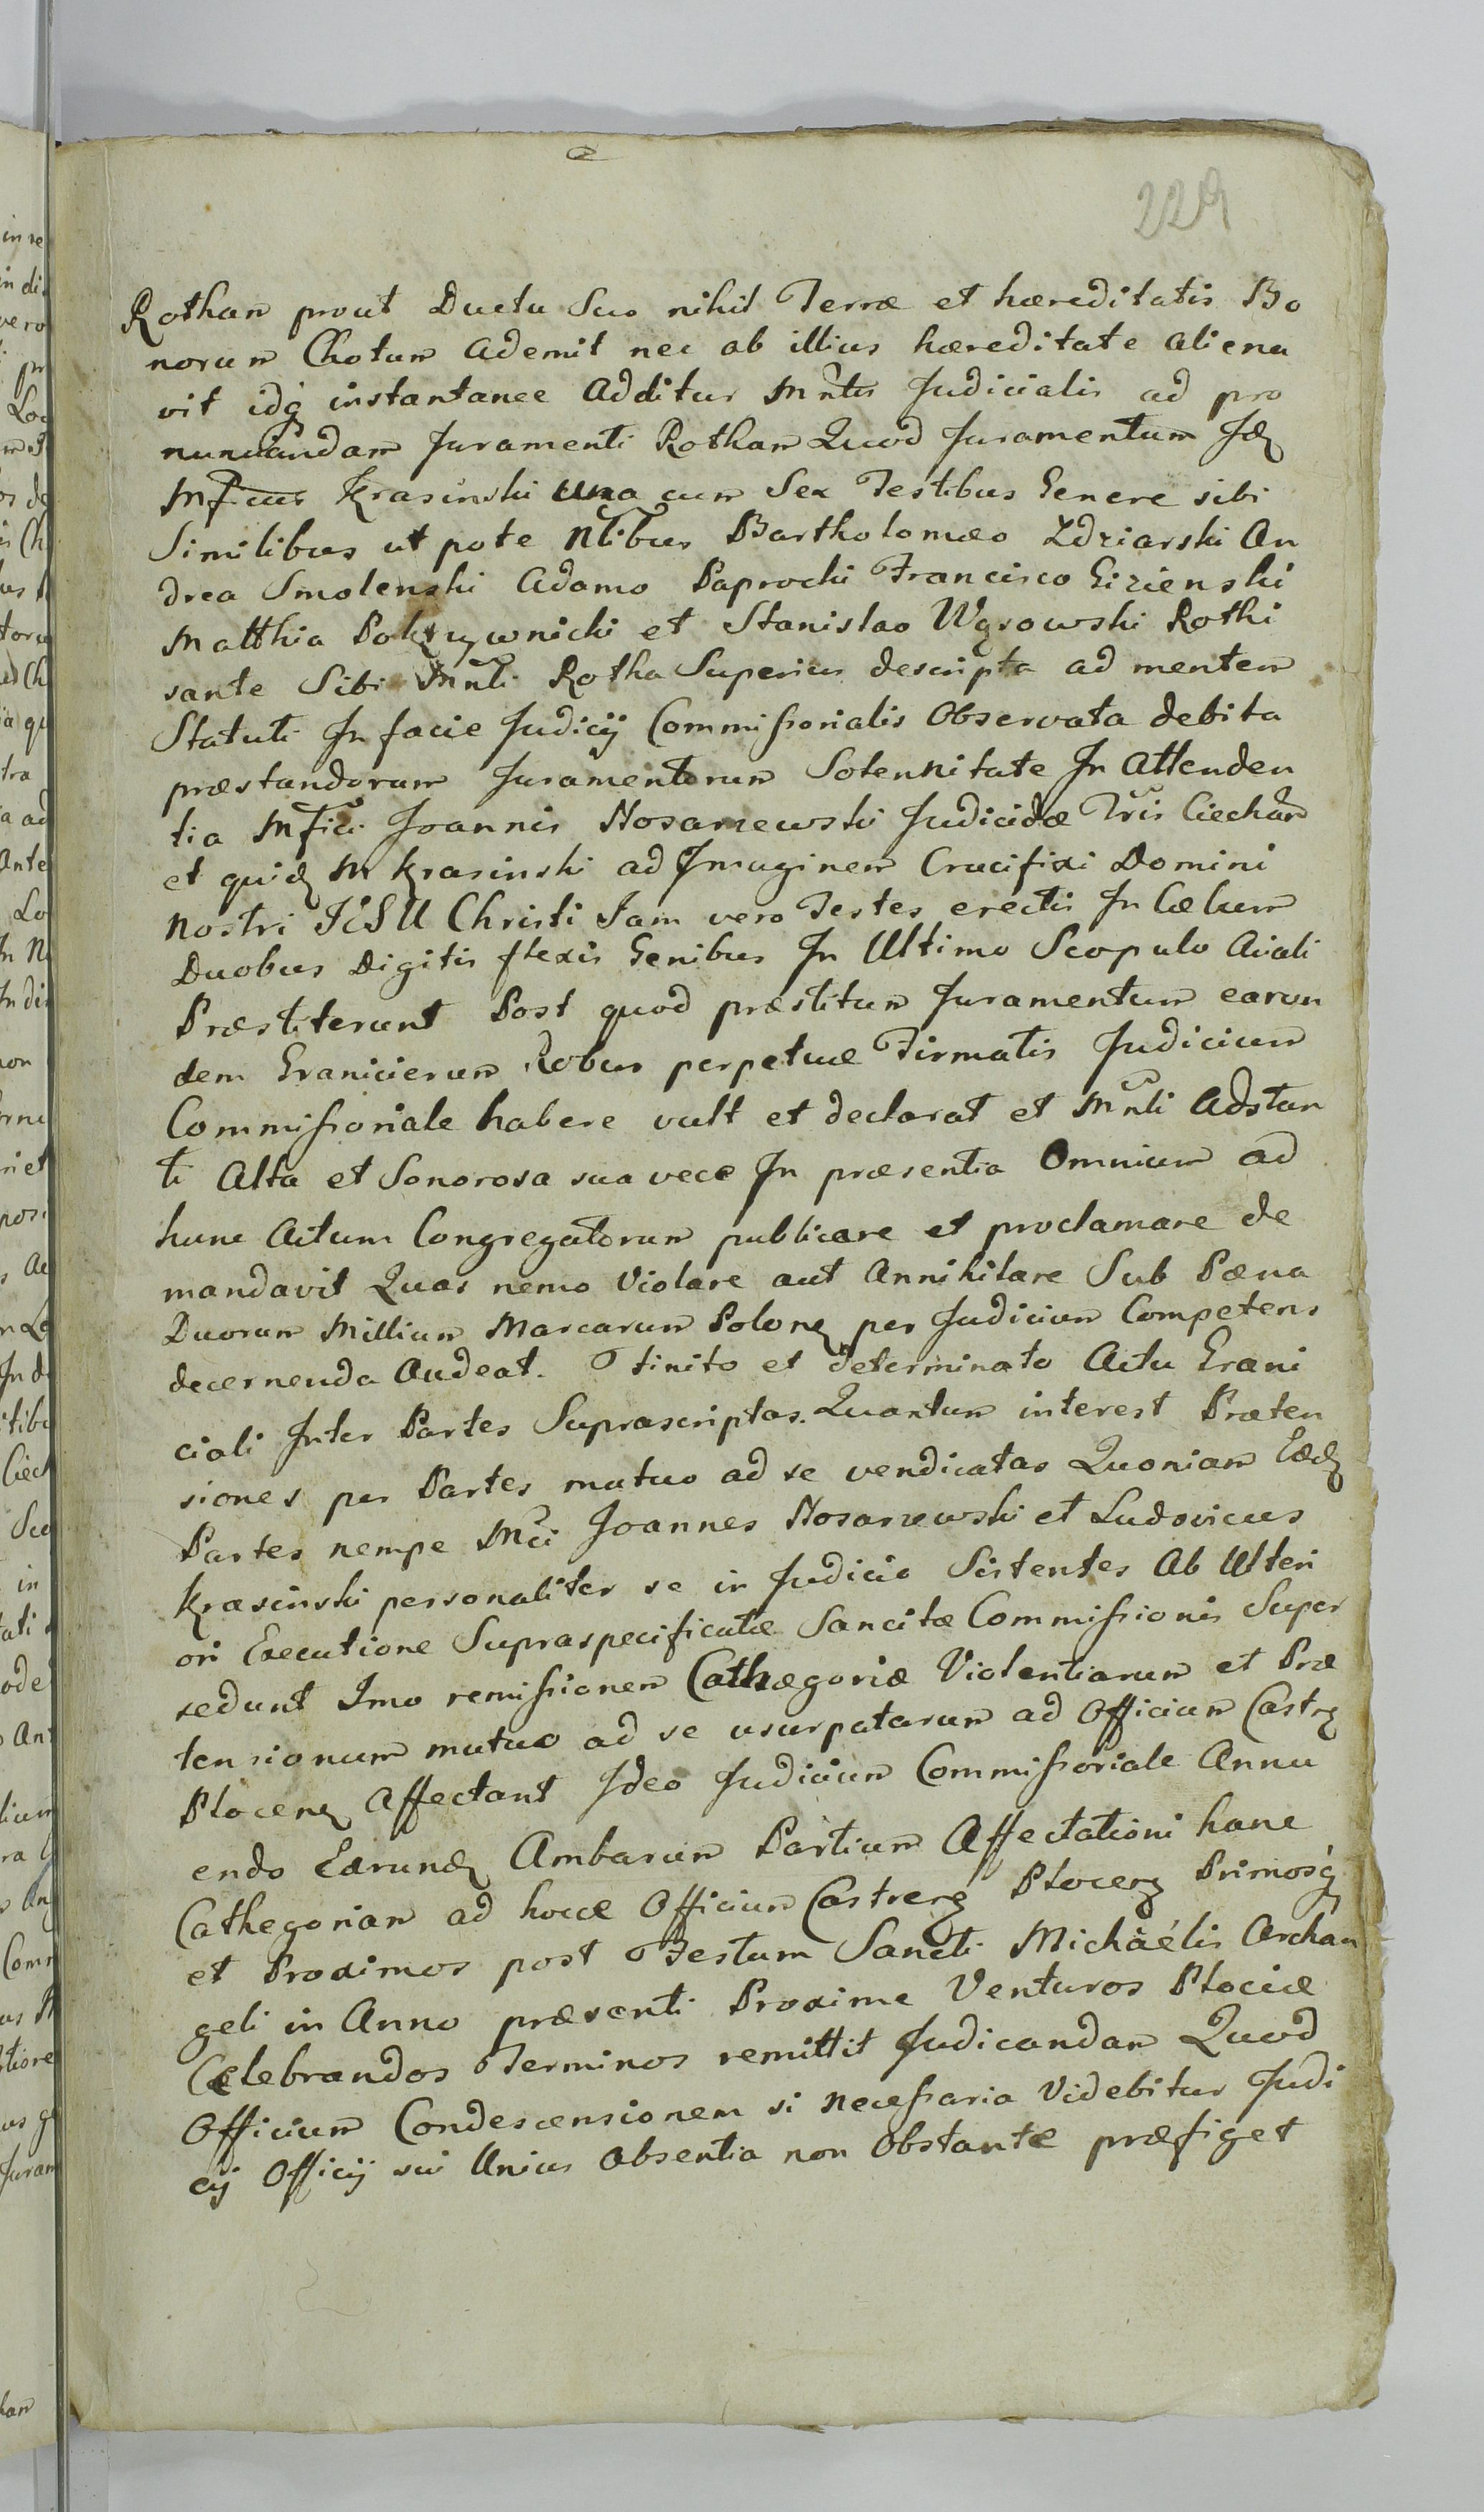 229
Rotham prout Ductu Suo nihil Terræ et hæreditatis Bo
norum Chotum Ademit nec ab illius hæreditate aliena
vit idq instantanee Additur Mnlis Judicialis ad pro
nunciandam Juramenti Rotham Quod Juramentum Id
Mficus Krasinski una cum Sex Testibus Genere sibi
Similibus ut pote Nlibus Bartholomæo Zdziarski An
drea Smolenski Adamo Paprocki Francisco Gizienski
Matthia Pokrzywnicki et Stanislao Wgrowski Rothi
sante Sibi Mnli Rotha Superius descripta ad mentem
Statuti In facie Judicij Commissorialis Observata debita
præstandorum Juramentorum Solennitate In Attenden
tia Mfici Joannis Nosarzewski Judicidæ Tris Ciechan
et quid M Krasinski ad Imaginem Crucifixi Domini
Nostri JESU Christi Jam vero Testes erectis In Cælum
Duobus Digitis flexis Genibus In Ultimo Scopulo Aciali
Præstiterunt Post quod præstitum Juramentum earun
dem Granicierum Robur perpetuæ Firmatis Judicium
Commissoriale habere vult et declarat et Mnli Adstan
ti Alta et Sonorosa sua voce In præsentia Omnium ad
hunc Actum Congregatorum publicare et proclamare de
mandavit Quas nemo Violare aut Annihilare Sub Pæna
Duorum Millium Marcarum Polon per Judicium Competens
decernenda Audeat. Finito et determinato Actu Grani
ciali Inter Partes Suprascriptas. Quantum interest Præten
siones per Partes mutuo ad se vendicatas Quoniam Eæd
Partes nempe Mci Joannes Nosarzewski et Ludovicus
Krasinski personaliter se in Judicio Sistentes Ab Ulteri
ori Executione Supraspecificatæ Sancitæ Commissionis Super
sedunt Imo remissionem Cathægoriæ Violentiarum et Præ
tensionum mutuo ad se usurpatarum ad Officium Castr
Plocen Affectant Ideo Judicium Commissoriale Annu
endo Earund Ambarum Partium Affectationi hanc
Cathegoriam ad hocce Officium Castren Plocen Primosq
et Proximos post Festum Sancti Michäélis Archan
geli in Anno præsenti Proxime Venturos Plociæ
Celebrandos Terminos remittit Judicandam Quod
Officium Condescensionem si necessaria Videbitur Judi
cij Officij sui Unius Absentia non Obstante præfiget